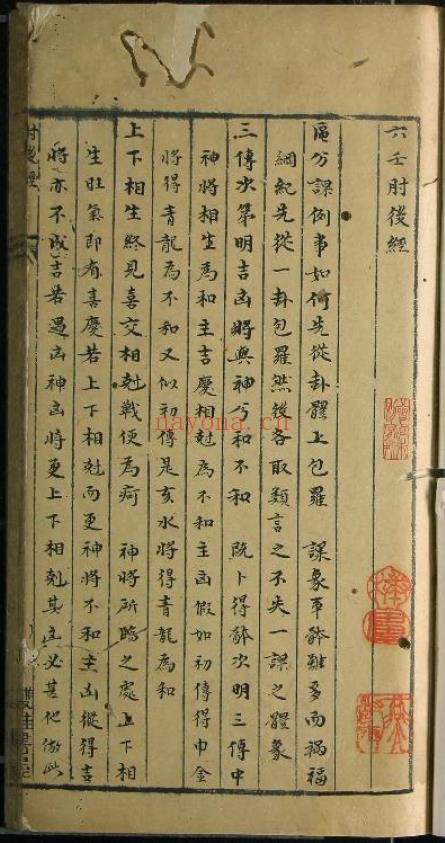 六壬肘後經
區分課例事如何先從卦體上包羅 課象事體雖多而禍福
綱紀先從一卦包羅然後各取類言之不失一課之體象
三傳次第明吉凶將與神兮和不和 既卜得體次明三傳中
神將相生為和主吉慶相尅為不和主凶假如初傳得申金
將得青龍為不和又似初傳是亥水將得青龍為和
上下相生終見喜交相尅戰便為疴 神將所臨之處上下相
生旺氣即有喜慶若上下相尅而更神將不和主凶縱得吉
將亦不成吉若遇凶神凶將更上下相尅其凶必甚他倣此
肘後經
nayona.cn